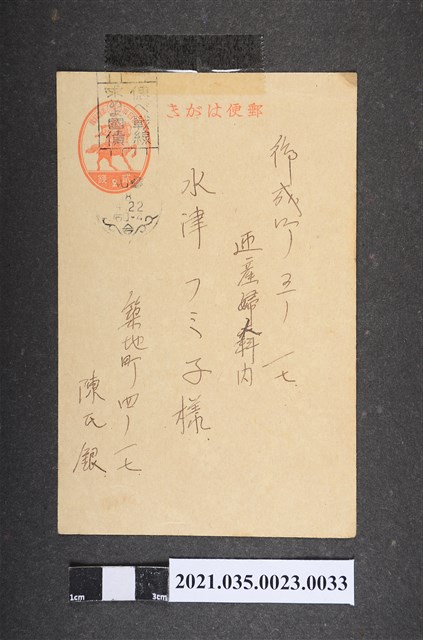 郵便はがき
御成町五ノ一七
産婦人科内
水津フミ子様
築地町四ノ一七
陳氏銀
22
1cm
3cm
2021.035.0023.0033